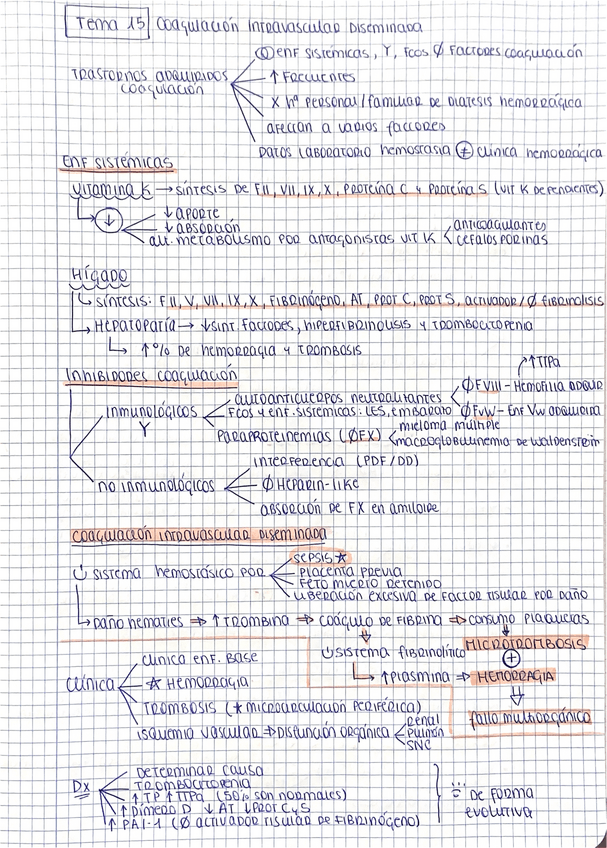 Tema 15 Coagulación intravascular diseminada
enf sistémicas, Y, Fcos Ø Factores coagulación
Trastornos adquiridos coagulación
↑ Frecuentes
X hª personal/familiar de diatesis hemorrágica
afectan a varios factores
Datos laboratorio hemostasia ⊕ clínica hemorrágica
Enf sistémicas
Vitamina K → síntesis de FII, VII, IX, X, proteína C y proteína S (vit K dependientes)
↓
↓ aporte
↓ absorción
alt. metabolismo por antagonistas vit K
anticoagulantes
cefalosporinas
Hígado
síntesis: FII, V, VII, IX, X, fibrinógeno, AT, prot C, prot S, activador/Ø fibrinolisis
Hepatopatía → ↓sint. factores, hiperfibrinolisis y trombocitopenia
↑% de hemorragia y trombosis
Inhibidores coagulación
↑TTPa
Inmunológicos Y
autoanticuerpos neutralizantes
ØFVIII - Hemofilia adquir
Fcos y enf. sistémicas: LES, embarazo
ØFvW - Enf vW adquirida
Paraproteinemias (ØFX)
mieloma múltiple
macroglobulinemia de Waldenstein
no inmunológicos
interferencia (PDF/DD)
Ø Heparin-like
absorción de FX en amiloide
Coagulación intravascular diseminada
sistema hemostásico por
sepsis ★
placenta previa
feto muerto retenido
liberación excesiva de factor tisular por daño
Daño hematies ⇒ ↑ trombina ⇒ coágulo de fibrina ⇒ consumo plaquetas
sistema fibrinolítico
↑plasmina ⇒
Microtrombosis
⊕
Hemorragia
fallo multiorgánico
Clínica
clínica enf. base
★ Hemorragia
Trombosis (★ microcirculación periférica)
isquemia vascular ⇒ disfunción orgánica
renal
pulmón
SNC
Dx
Determinar causa
Trombocitopenia
↑TP ↑TTPa (50% son normales)
↑ Dímero D ↓ AT ↓ Prot C y S
↑ PAI-1 (Ø activador tisular de fibrinógeno)
De forma evolutiva